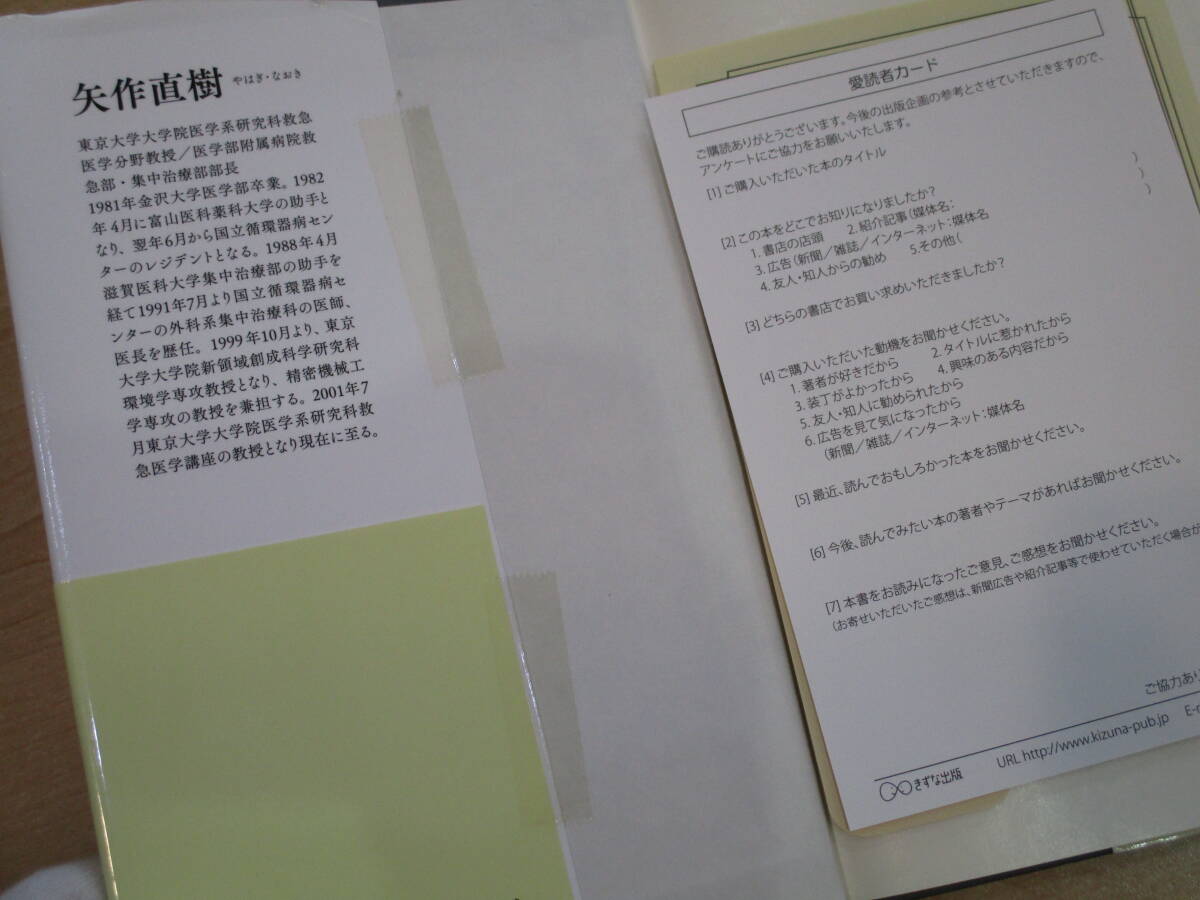 矢作直樹 やはぎ・なおき
東京大学大学院医学系研究科救急
医学分野教授／医学部附属病院救
急部・集中治療部部長
1981年金沢大学医学部卒業。1982
年4月に富山医科薬科大学の助手と
なり、翌年6月から国立循環器病セン
ターのレジデントとなる。1988年4月
滋賀医科大学集中治療部の助手を
経て1991年7月より国立循環器病セ
ンターの外科系集中治療科の医師、
医長を歴任。1999年10月より、東京
大学大学院新領域創成科学研究科
環境学専攻教授となり、精密機械工
学専攻の教授を兼担する。2001年7
月東京大学大学院医学系研究科救
急医学講座の教授となり現在に至る。
愛読者カード
ご購読ありがとうございます。今後の出版企画の参考とさせていただきますので、
アンケートにご協力をお願いいたします。
[1] ご購入いただいた本のタイトル
[2] この本をどこでお知りになりましたか？
1. 書店の店頭 2. 紹介記事（媒体名： ）
3. 広告（新聞／雑誌／インターネット：媒体名 ）
4. 友人・知人からの勧め 5.その他（ ）
[3] どちらの書店でお買い求めいただきましたか？
[4] ご購入いただいた動機をお聞かせください。
1. 著者が好きだから 2. タイトルに惹かれたから
3. 装丁がよかったから 4. 興味のある内容だから
5. 友人・知人に勧められたから
6. 広告を見て気になったから
（新聞／雑誌／インターネット：媒体名
[5] 最近、読んでおもしろかった本をお聞かせください。
[6] 今後、読んでみたい本の著者やテーマがあればお聞かせください。
[7] 本書をお読みになったご意見、ご感想をお聞かせください。
（お寄せいただいたご感想は、新聞広告や紹介記事等で使わせていただく場合が
ご協力あり
きずな出版 URL http://www.kizuna-pub.jp